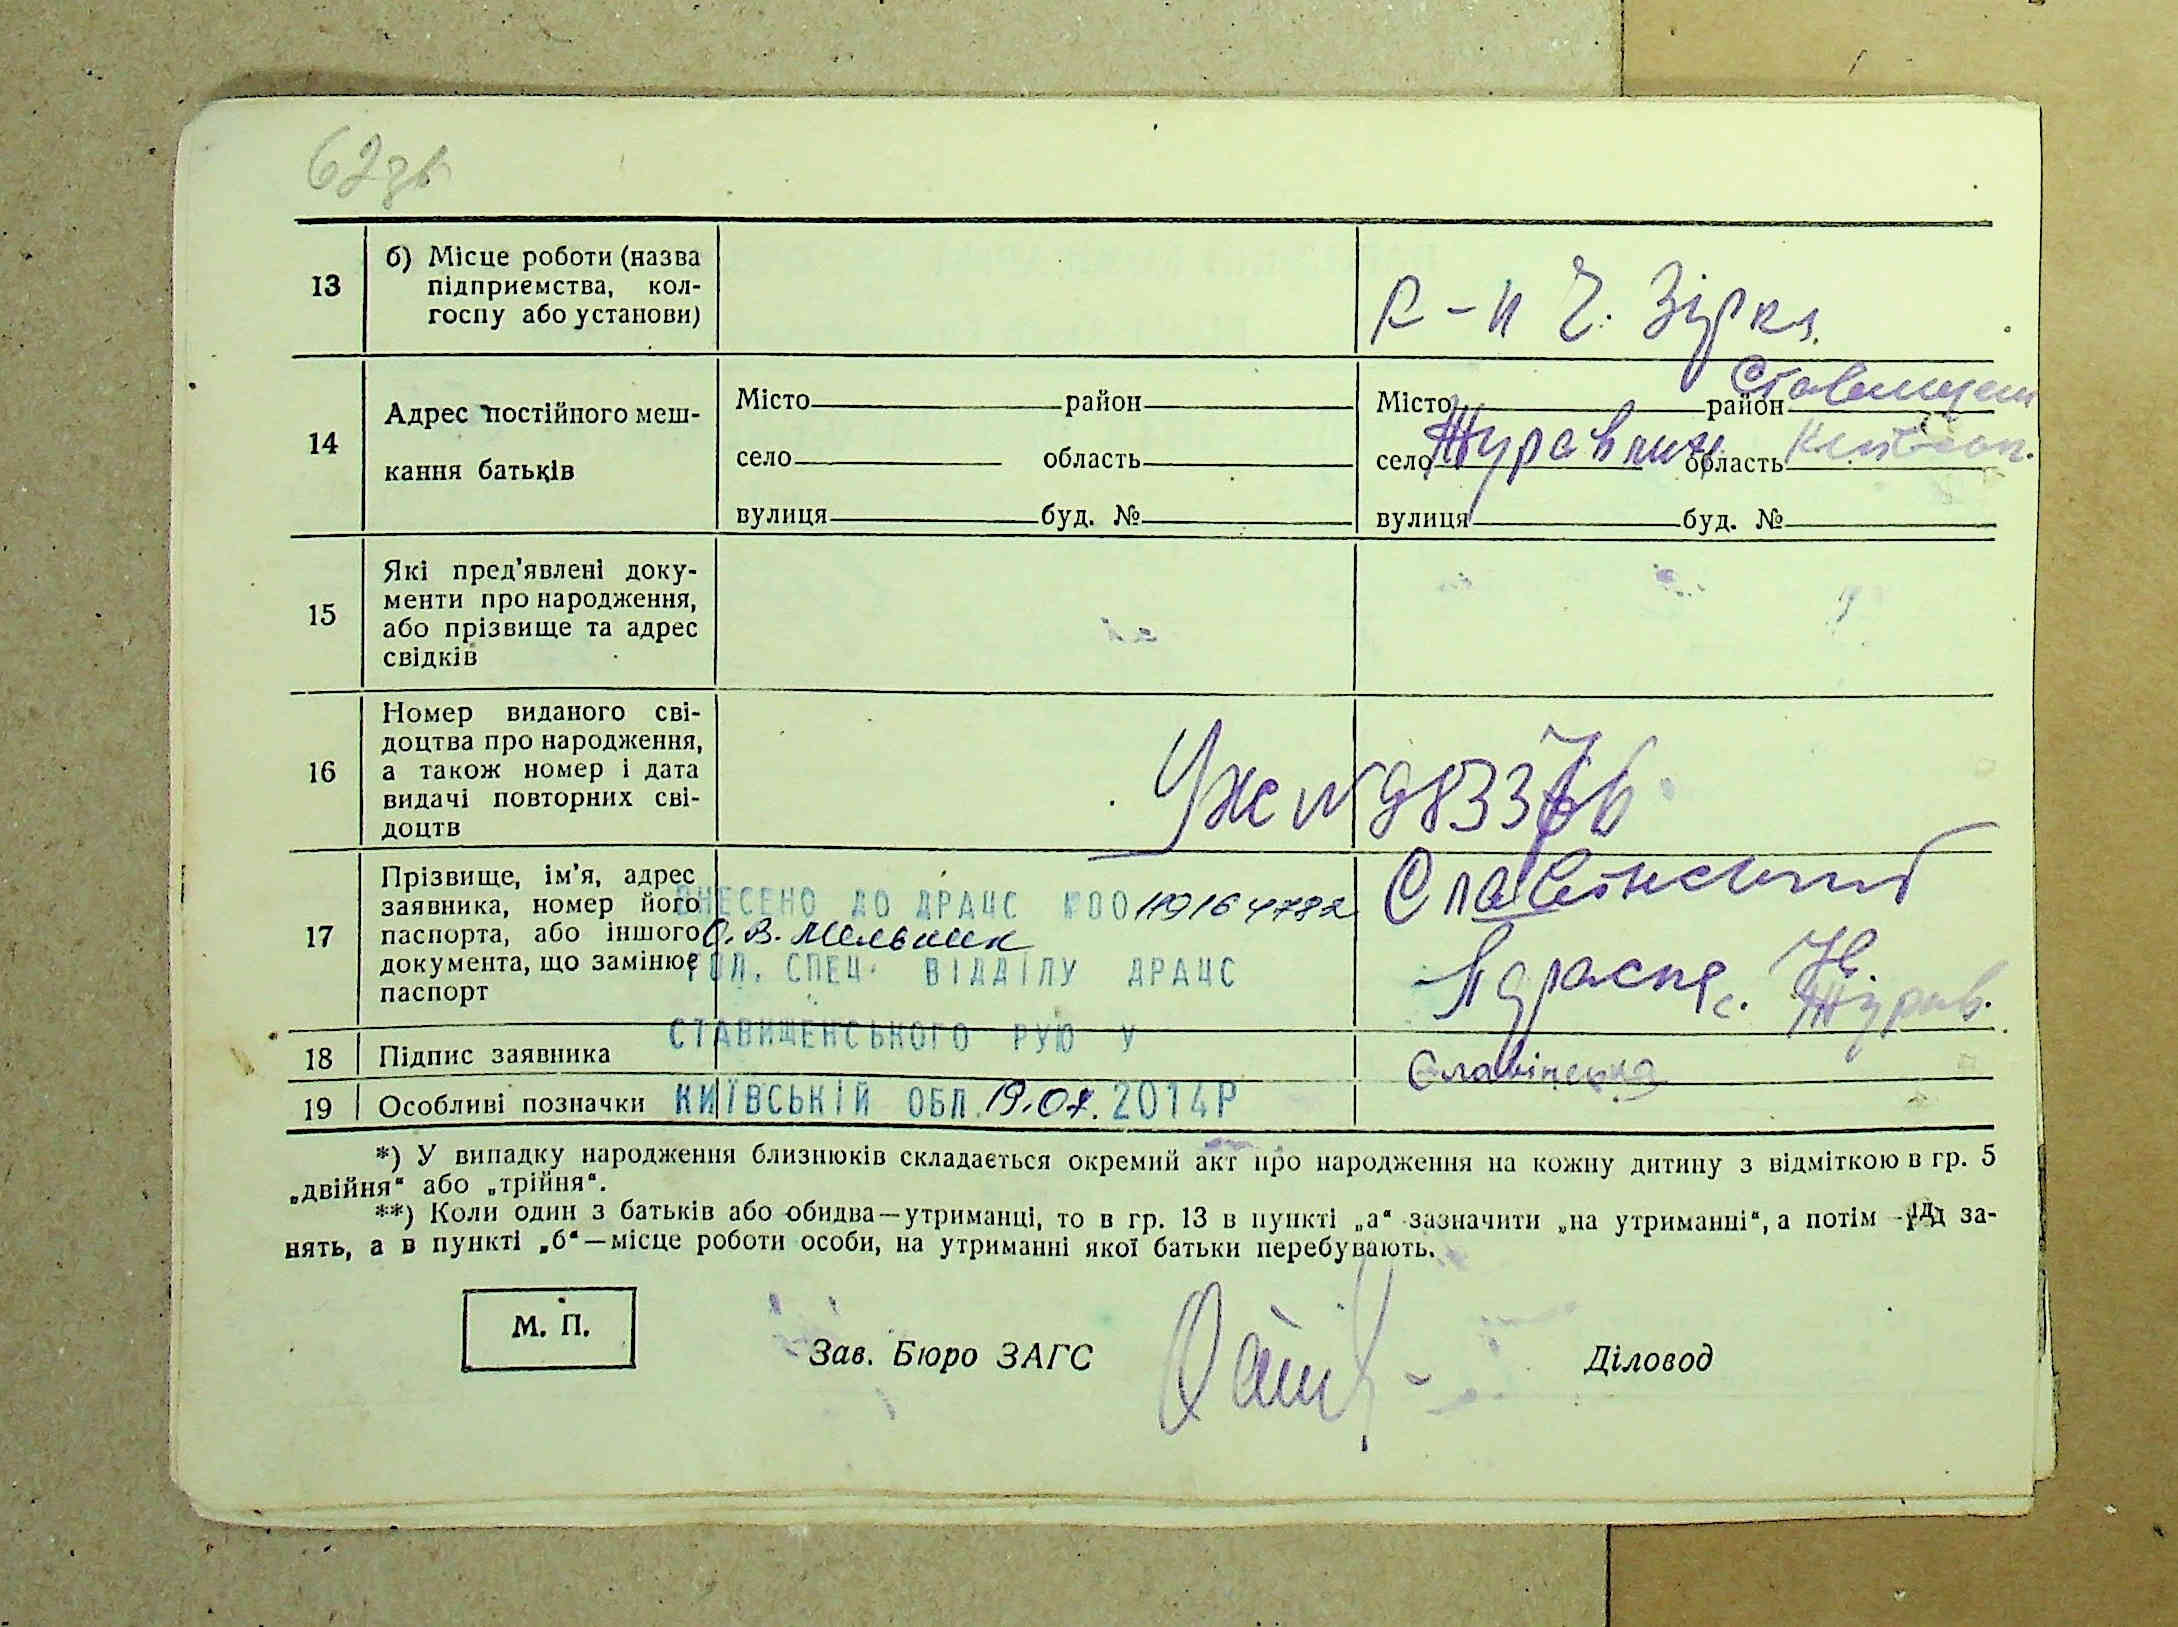 62зв
13
б) Місце роботи (назва
підприємства, кол-
госпу або установи)
к-п Ч. Зірка.
14
Адрес постійного меш-
кання батьків
Місто район
село область
вулиця буд. №
Місто район Ставищен
село Журавлих область Київськ.
вулиця буд. №
15
Які пред'явлені доку-
менти про народження,
або прізвище та адрес
свідків
16
Номер виданого сві-
доцтва про народження,
а також номер і дата
видачі повторних сві-
доцтв
УЖ № 983376
17
Прізвище, ім'я, адрес
заявника, номер його
паспорта, або іншого
документа, що замінює
паспорт
ВНЕСЕНО ДО ДРАЦС №00119164782
О. В. Мельник
ГОЛ. СПЕЦ. ВІДДІЛУ ДРАЦС
СТАВИЩЕНСЬКОГО РУЮ У
КИЇВСЬКІЙ ОБЛ. 19.07.2014Р
с. Журав.
18
Підпис заявника
Славінська
19
Особливі позначки
*) У випадку народження близнюків складається окремий акт про народження на кожну дитину з відміткою в гр. 5
„двійня“ або „трійня“.
**) Коли один з батьків або обидва—утриманці, то в гр. 13 в пункті „а“ зазначити „на утриманні“, а потім рід за-
нять, а в пункті „б“—місце роботи особи, на утриманні якої батьки перебувають.
М. П.
Зав. Бюро ЗАГС
Діловод